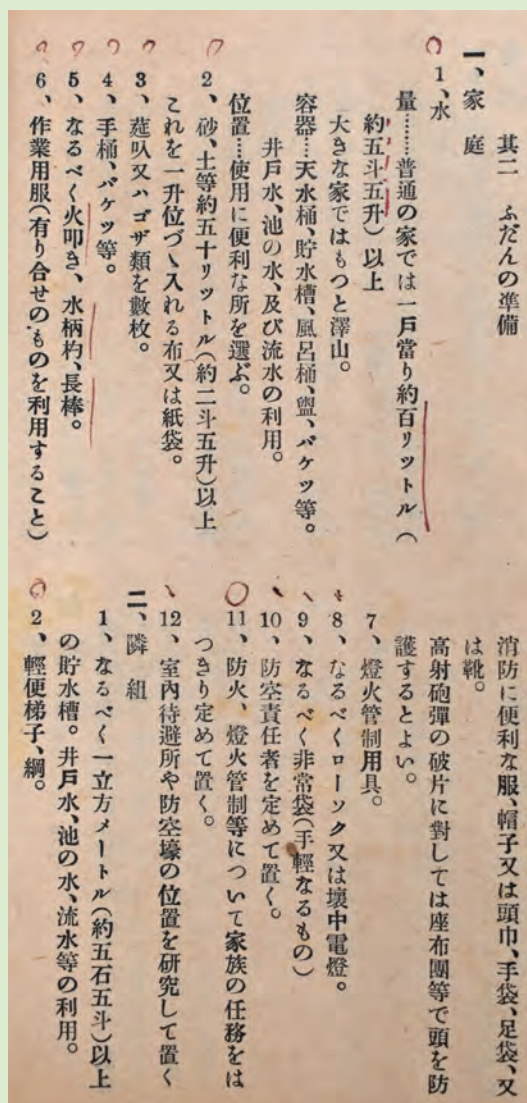 其二　ふだんの準備
一、家　庭
1、水
量……普通の家では一戸當り約百リットル(
約五斗五升)以上
大きな家ではもつと澤山。
容器…天水桶、貯水槽、風呂桶、盥、バケツ等。
井戸水、池の水、及び流水の利用。
位置…使用に便利な所を選ぶ。
2、砂、土等約五十リットル(約二斗五升)以上
これを一升位づゝ入れる布又は紙袋。
3、莚叺又ハゴザ類を數枚。
4、手桶、バケツ等。
5、なるべく火叩き、水柄杓、長棒。
6、作業用服(有り合せのものを利用すること)
消防に便利な服、帽子又は頭巾、手袋、足袋、又
は靴。
高射砲彈の破片に對しては座布團等で頭を防
護するとよい。
7、燈火管制用具。
8、なるべくローソク又は壞中電燈。
9、なるべく非常袋(手輕なるもの)
10、防空責任者を定めて置く。
11、防火、燈火管制等について家族の任務をは
つきり定めて置く。
12、室內待避所や防空壕の位置を硏究して置く
二、隣　組
1、なるべく一立方メートル(約五石五斗)以上
の貯水槽。井戸水、池の水、流水等の利用。
2、輕便梯子、綱。